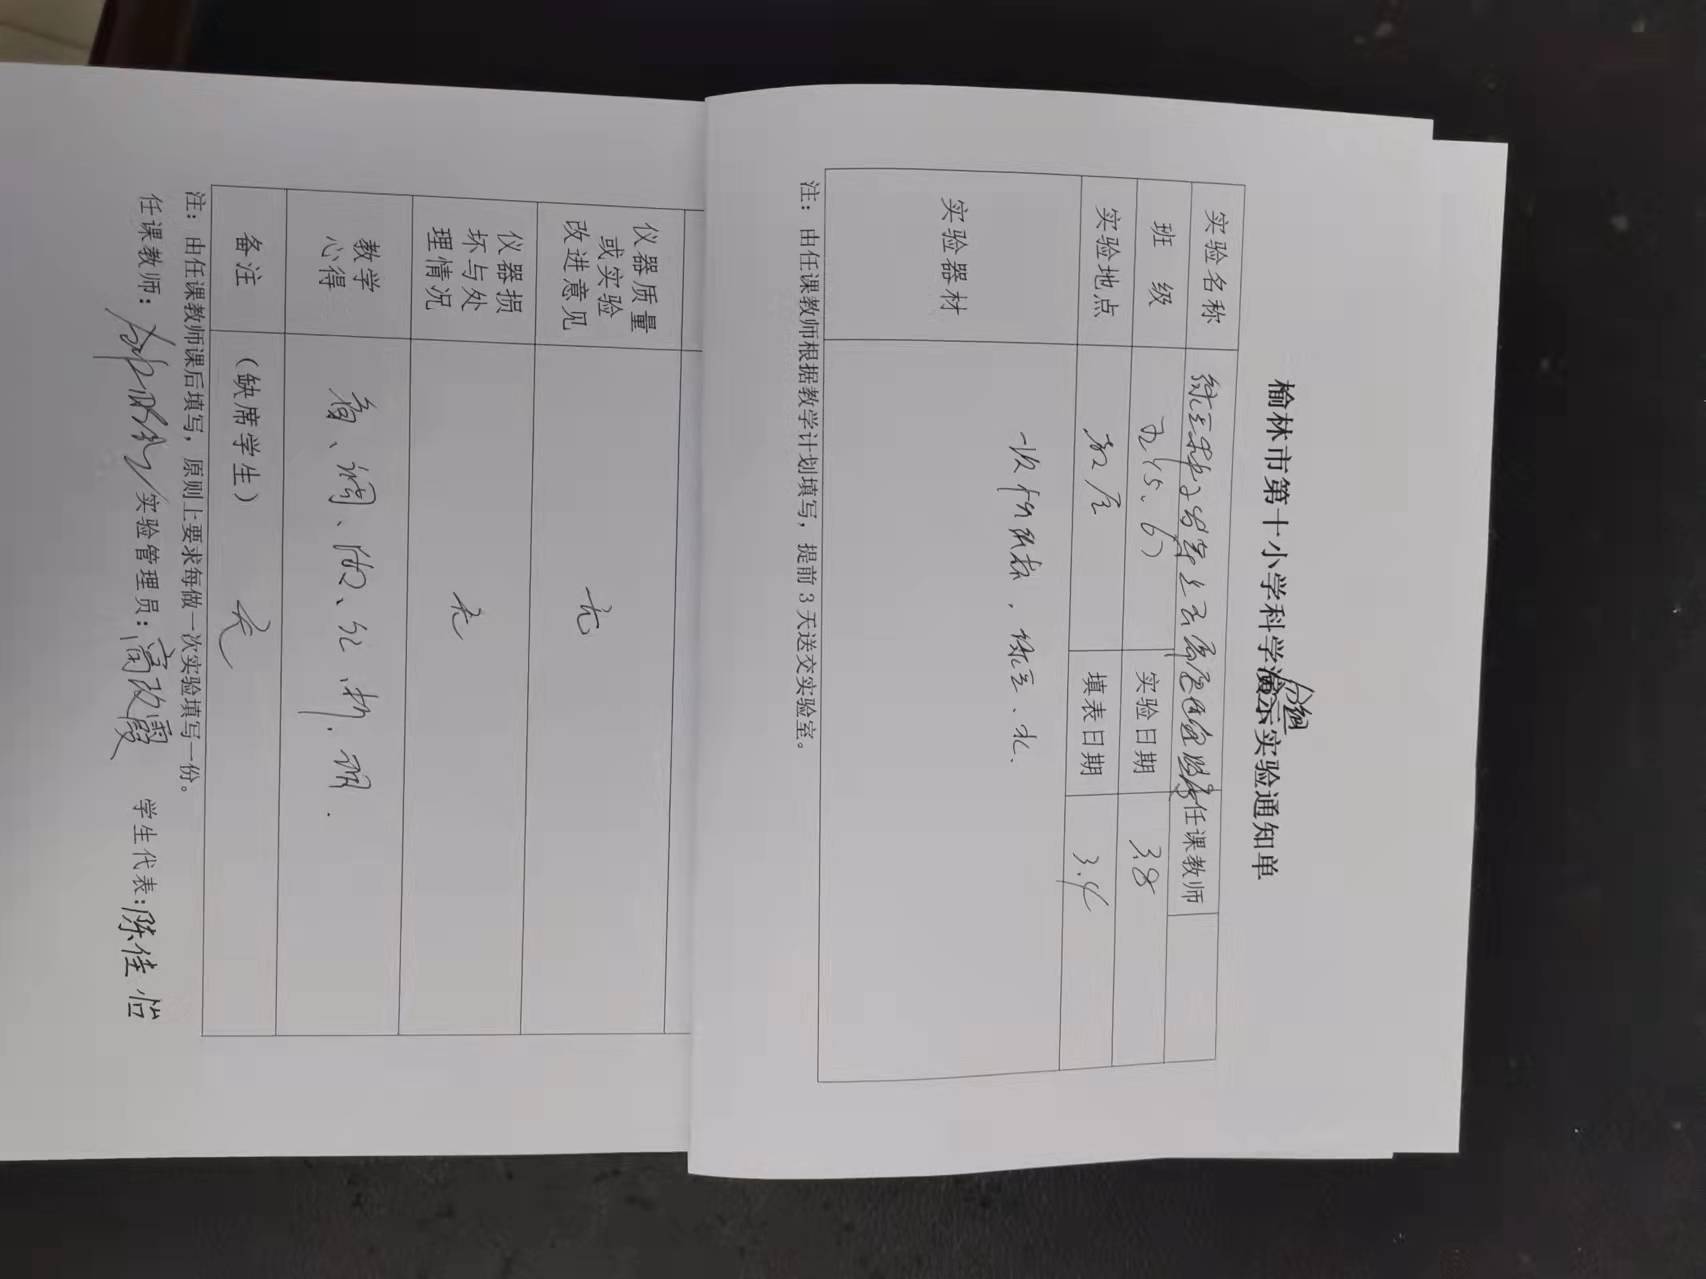 榆林市第十小学科学分组实验通知单
实验名称 绿豆种子发芽 任课教师
班 级 五(5、6) 实验日期 3.8
实验地点 教室 填表日期 3.4
实验器材 一次性纸杯，绿豆、水.
注：由任课教师根据教学计划填写，提前3天送交实验室。
仪器质量或实验改进意见 无
仪器损坏与处理情况 无
教学心得 看、调、做、记、析、明.
备注 （缺席学生） 无
注：由任课教师课后填写，原则上要求每做一次实验填写一份。
任课教师： 实验管理员：高改霞 学生代表：陈佳怡